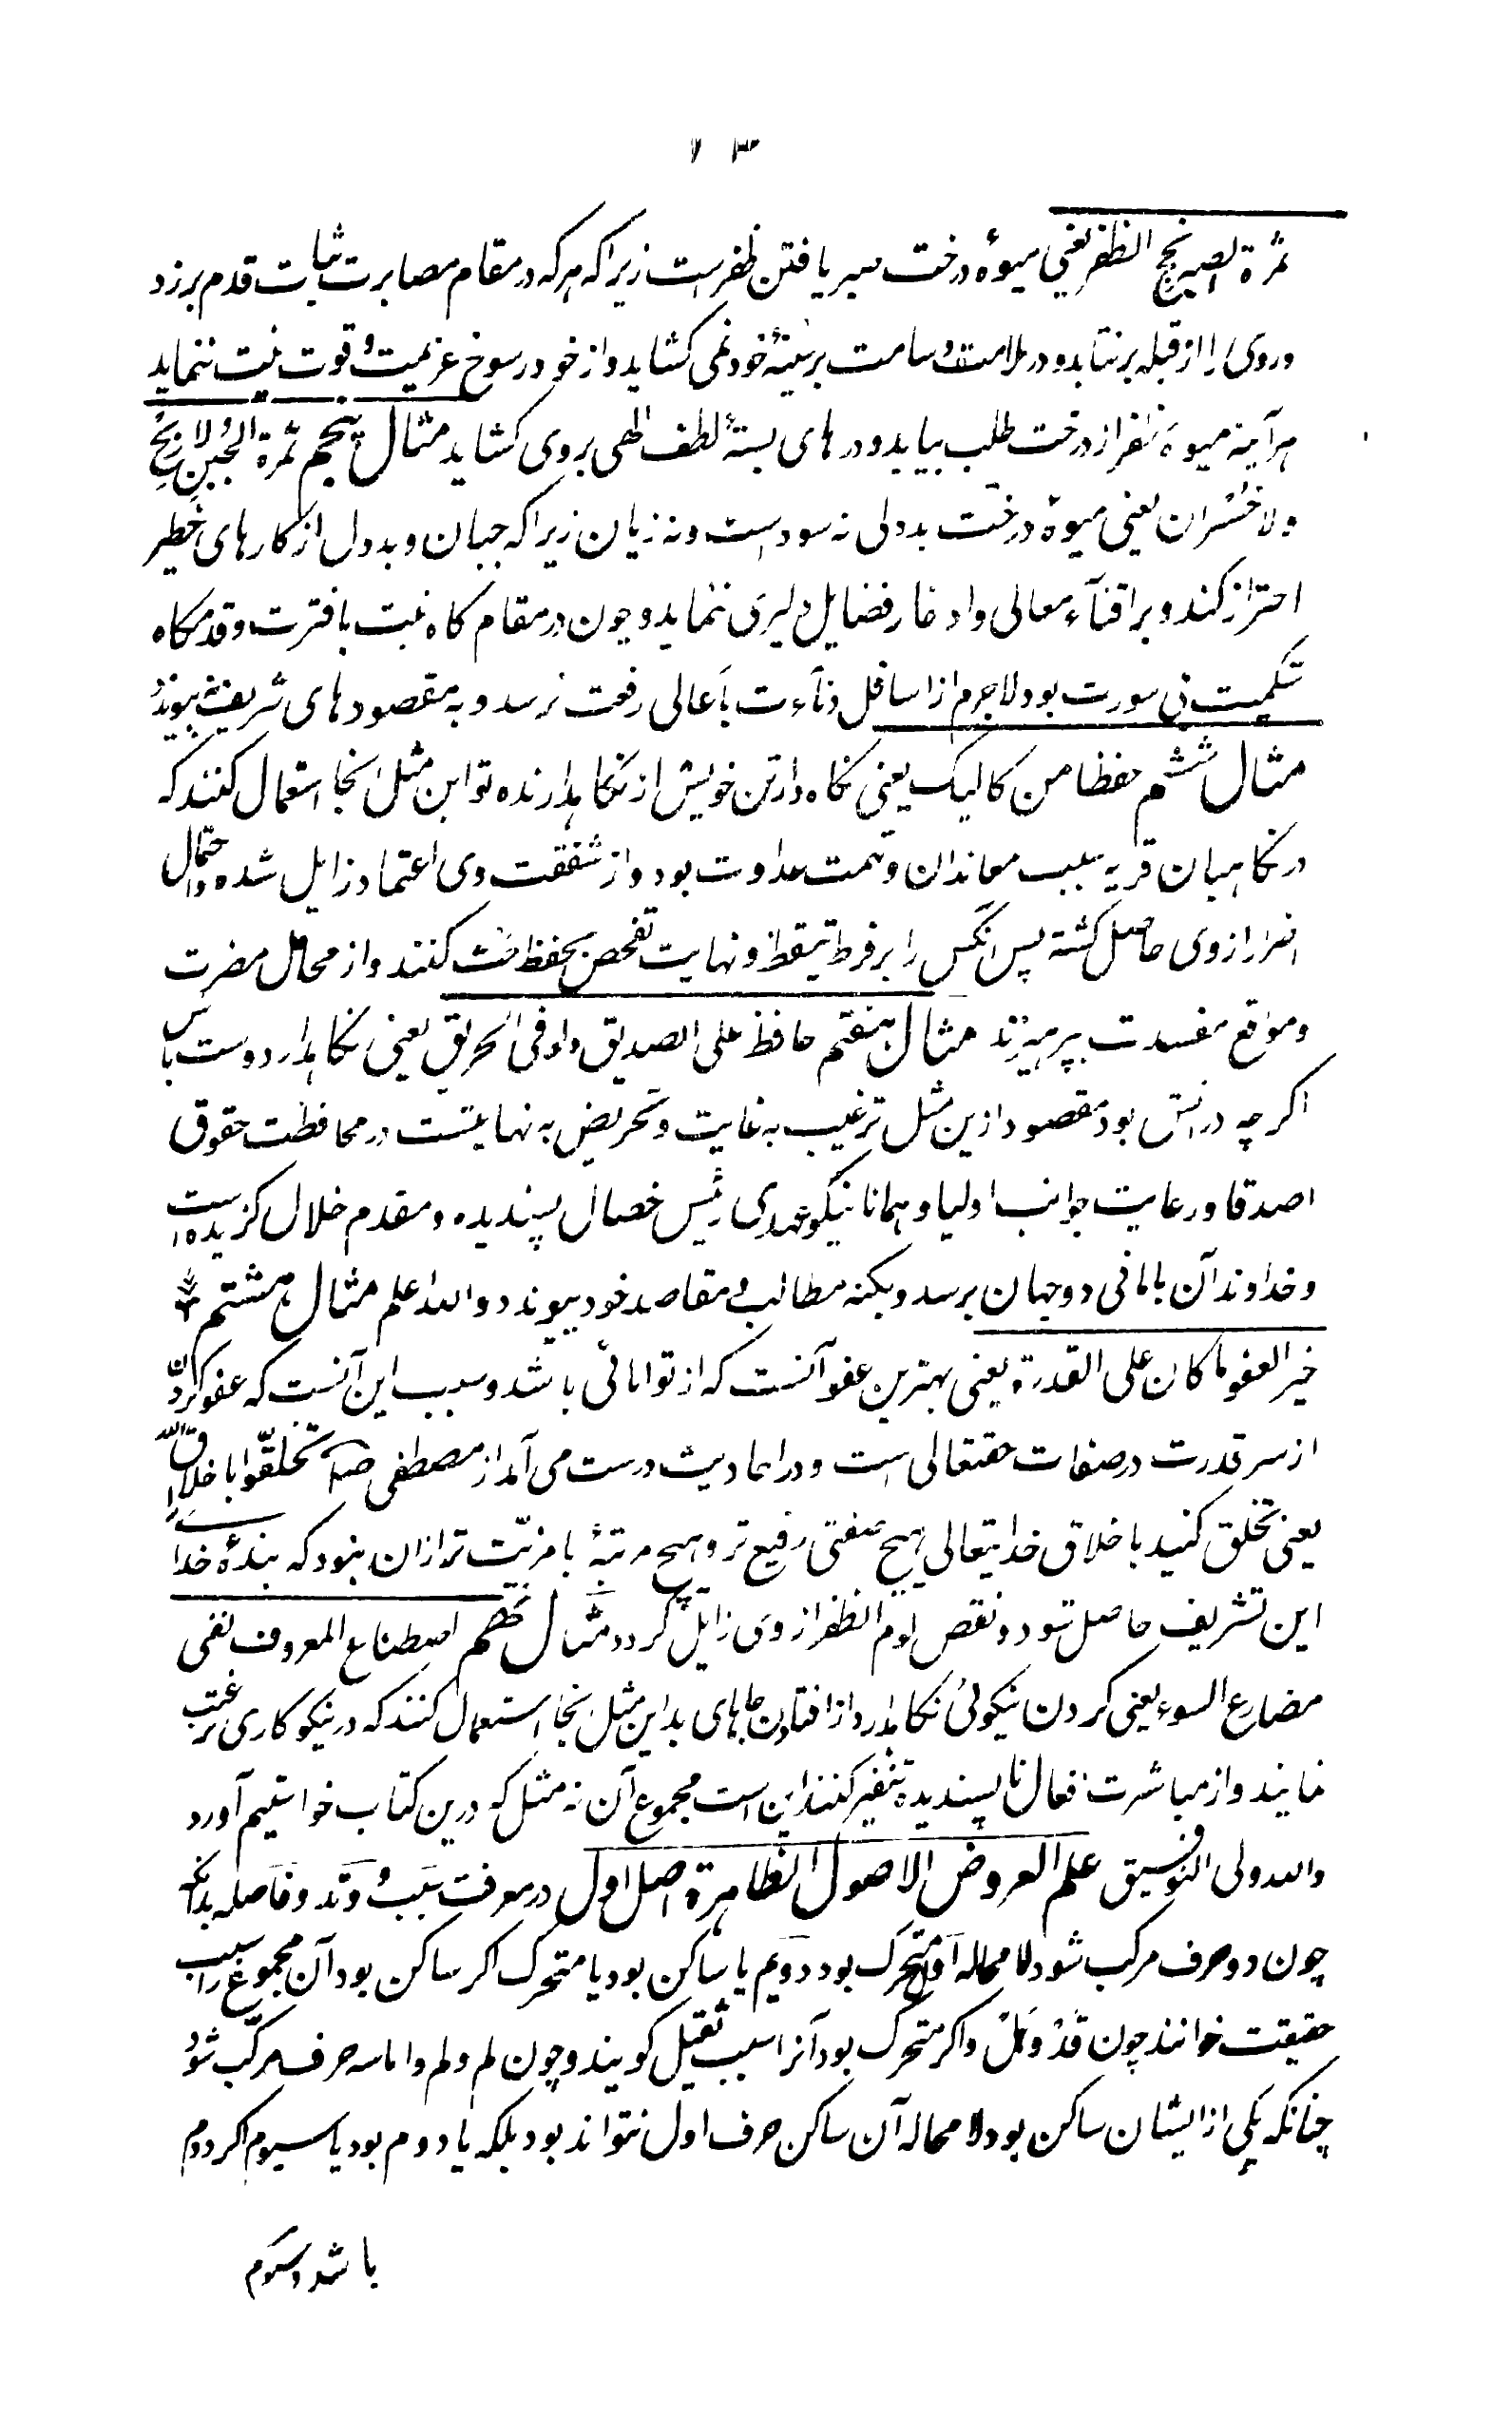 ۶۳
ثمرة الصبر نجح الظفر یعنی میوهٔ درخت صبر یافتن ظفر است زیرا که هر که در مقام مصابرت ثبات قدم برزد
و روی را از قبله برنتابد و در ملامت و سامت بر سینهٔ خود نمی کشاید و از خود رسوخ عزیمت و قوت نیت نماید
هر آینه میوهٔ ظفر از درخت طلب بیابد و درهای بستهٔ لطف الهی بروی کشاید مثال پنجم ثمرة الجبن لا ربح
ولا خسران یعنی میوهٔ درخت بددلی نه سود است و نه زیان زیرا که جبان و بددل از کارهای خطیر
احتراز کند و بر اقتناء معالی و ادخار فضایل دلیری ننماید و چون در مقام کاه نیت با فترت و قدمکاه
بی سورت بود لاجرم از اسافل دنآءت باعالی رفعت نرسد و به مقصودهای شریف نه پیوندد
مثال ششم حفظا من کالیک یعنی نکاه دار تن خویش از نکاهدارنده تو این مثل انجا استعمال کنند که
در نکاهبان قربه بسبب معاندان و تهمت عداوت بود و از شفقت وی اعتماد زایل شده و احتمال
اضرار از وی حاصل کشته پس آنکس را بر فرط تیقظ و نهایت تفحص بحفظ کنند و از محال مضرت
و مواقع مفسدت بپرهیزند مثال هفتم حافظ علی الصدیق ولو فی الحریق یعنی نکاهدار دوست باش
اکرچه در آتش بود مقصود ازین مثل ترغیب به غایت و تحریض به نهایتست در محافظت حقوق
اصدقا و رعایت جوانب اولیا و همانا نیکو عهدی رئیس خصال پسندیده و مقدم خلال کزیده است
و خداوند آن باما فی دوجهان برسد و بکنه مطالب و مقاصد خود پیوندد والله اعلم مثال هشتم
خیر العفو ما کان علی القدرة یعنی بهترین عفو آنست که از توانائی باشد و سبب این آنست که عفو کردن
از سر قدرت در صفات حقتعالی است و در احادیث درست می آمد از مصطفی صلعم تخلقوا باخلاق الله
یعنی تخلق کنید باخلاق خدایتعالی هیچ صفتی رفیع تر و هیچ مرتبهٔ بامزیت تر ازان نبود که بندهٔ خدا را
این تشریف حاصل شود و نقص لوم الظفر از وی زایل کردد مثال نهم اصطناع المعروف تقی
مضارع السوء یعنی کردن نیکوئی نکاهدارد از افتادن جاهای بد این مثل انجا استعمال کنند که در نیکوکاری رغبت
نمایند و از مباشرت افعال ناپسندیده تنفیر کنند این است مجموع آن نه مثل که درین کتاب خواستیم آورد
والله ولی التوفیق علم العروض الاصول الظاهرة اصل اول در معرفت سبب و وتد و فاصله بدانکه
چون دو حرف مرکب شود لامحاله اول متحرک بود دویم یا ساکن بود یا متحرک اکر ساکن بود آن مجموع را سبب
حقیقت خوانند چون قد و بل و اکر متحرک بود آنرا سبب ثقیل کویند و چون لم ولم و اما سه حرف مرکب شود
چنانکه یکی از ایشان ساکن بود لامحاله آن ساکن حرف اول نتواند بود بلکه یا دوم بود یا سیوم اکر دوم
باشد و سیوم